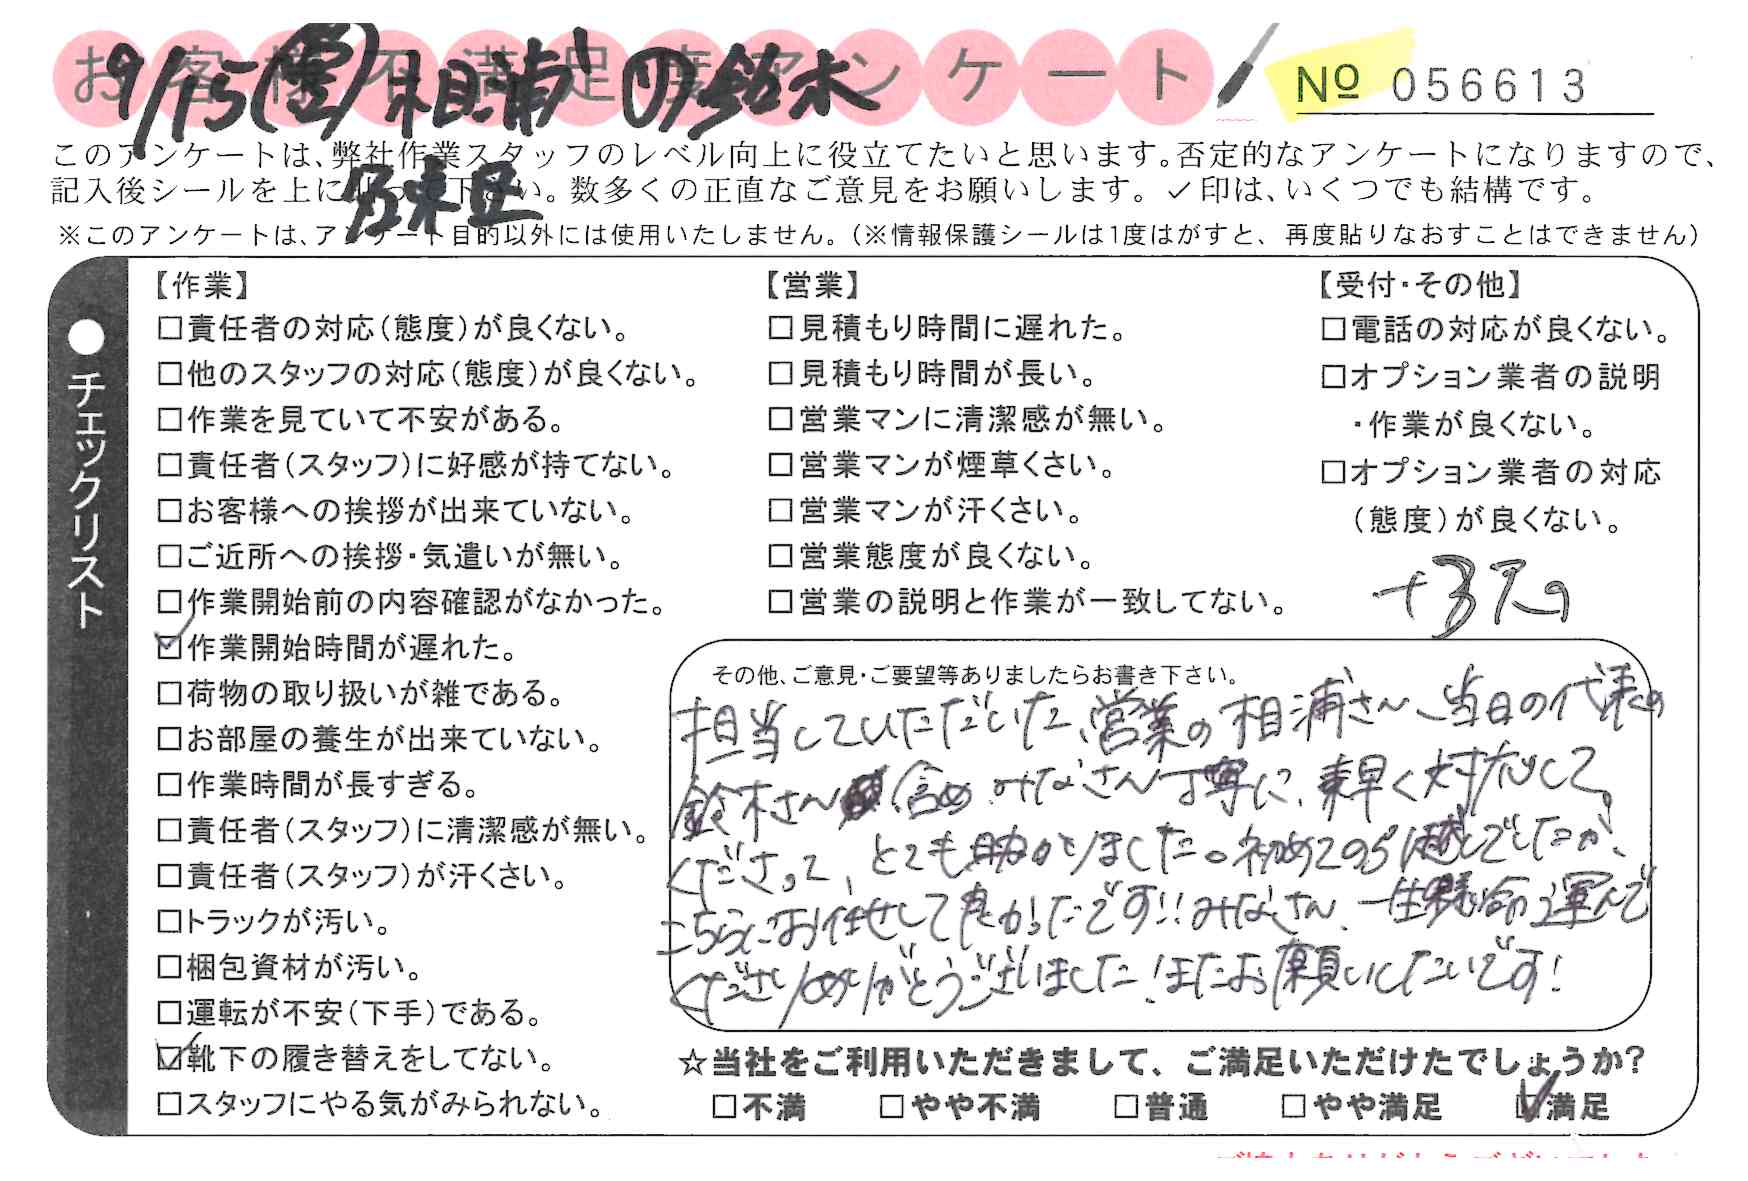 お客様不満足度アンケート
№ 056613
9/15(金)相浦 の 鈴木
このアンケートは、弊社作業スタッフのレベル向上に役立てたいと思います。否定的なアンケートになりますので、
記入後シールを上に貼って下さい。数多くの正直なご意見をお願いします。✓印は、いくつでも結構です。
※このアンケートは、アンケート目的以外には使用いたしません。(※情報保護シールは1度はがすと、再度貼りなおすことはできません)
●チェックリスト
【作業】
□責任者の対応(態度)が良くない。
□他のスタッフの対応(態度)が良くない。
□作業を見ていて不安がある。
□責任者(スタッフ)に好感が持てない。
□お客様への挨拶が出来ていない。
□ご近所への挨拶・気遣いが無い。
□作業開始前の内容確認がなかった。
☑作業開始時間が遅れた。
□荷物の取り扱いが雑である。
□お部屋の養生が出来ていない。
□作業時間が長すぎる。
□責任者(スタッフ)に清潔感が無い。
□責任者(スタッフ)が汗くさい。
□トラックが汚い。
□梱包資材が汚い。
□運転が不安(下手)である。
☑靴下の履き替えをしてない。
□スタッフにやる気がみられない。
【営業】
□見積もり時間に遅れた。
□見積もり時間が長い。
□営業マンに清潔感が無い。
□営業マンが煙草くさい。
□営業マンが汗くさい。
□営業態度が良くない。
□営業の説明と作業が一致してない。
【受付・その他】
□電話の対応が良くない。
□オプション業者の説明
・作業が良くない。
□オプション業者の対応
(態度)が良くない。
その他、ご意見・ご要望等ありましたらお書き下さい。
担当していただいた、営業の相浦さん、当日の代表の
鈴木さん含め、みなさん丁寧に、素早く対応して
くださって、とても助かりました。初めての引越しでしたが、
こちらにお任せして良かったです!!みなさん、一生懸命運んで
くださりありがとうございました!またお願いしたいです!
☆当社をご利用いただきまして、ご満足いただけたでしょうか?
□不満 □やや不満 □普通 □やや満足 ☑満足